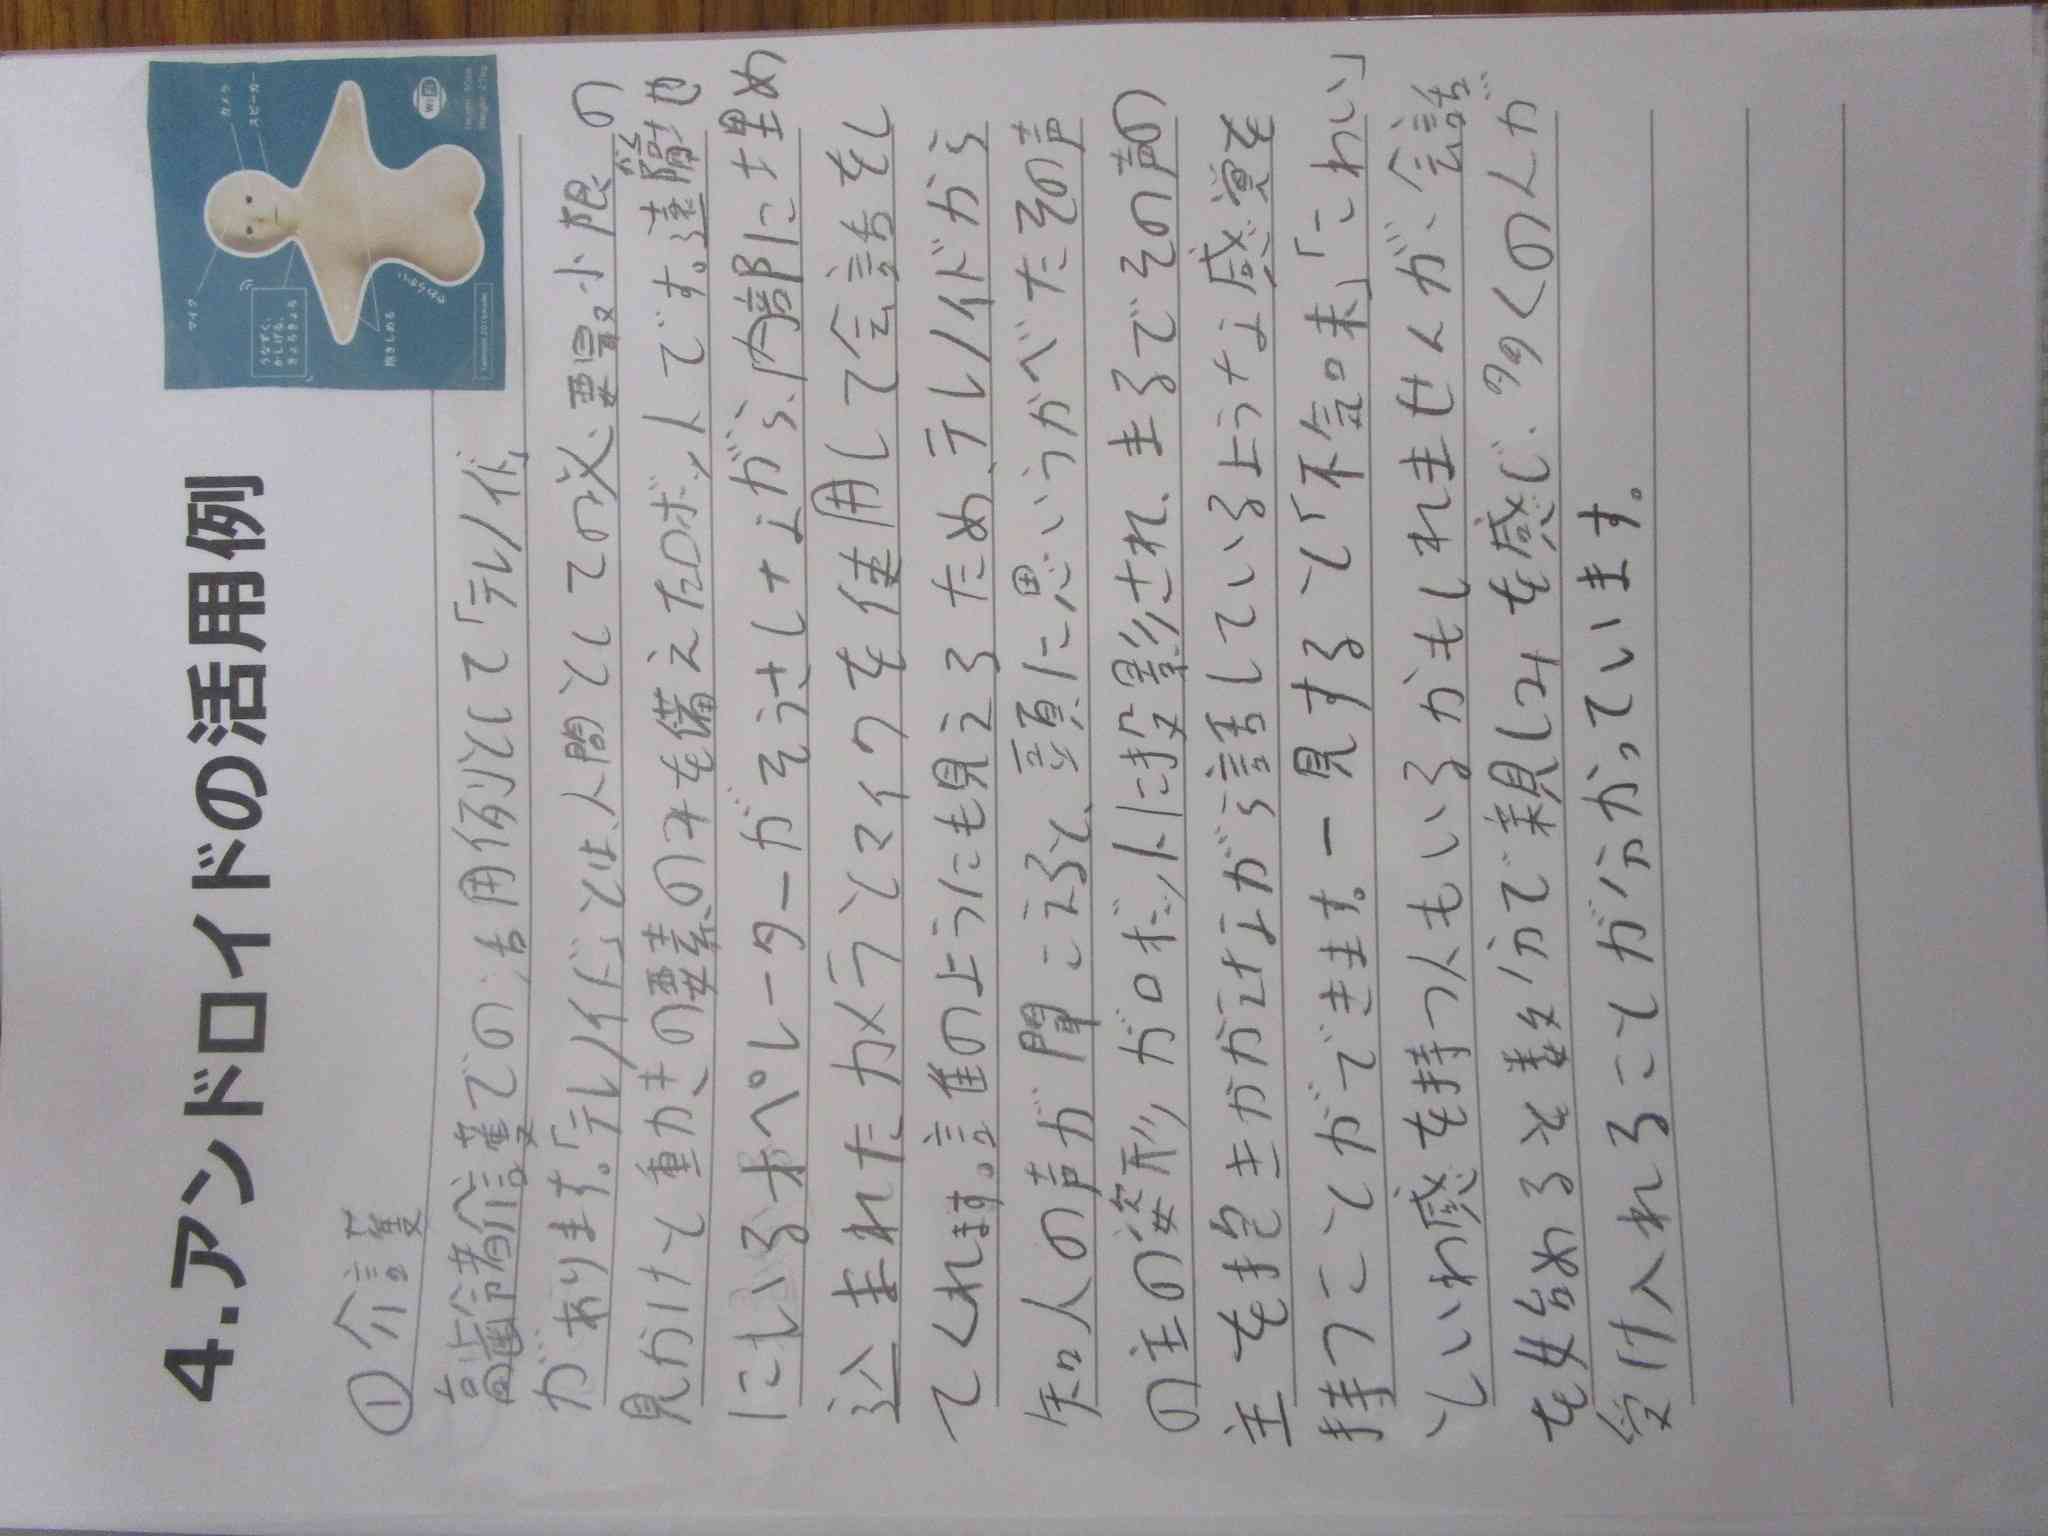 4.アンドロイドの活用例
マイク
カメラ
スピーカー
うなずく、
かしげる、
きょろきょろ
抱きしめる
WiFi
①介護
高齢者介護での活用例として「テレノイド」
があります。「テレノイド」とは、人間としての必要最小限の
見かけと動きの要素のみを備えたロボットです。遠隔地
にいるオペレーターがそうさしながら、内部に埋め
込まれたカメラとマイクを使用して会話をし
てくれます。誰のようにも見えるため、テレノイドから
知人の声が聞こえると、頭に思いうかべたその声
の主の姿形がロボットに投影され、まるでその声の
主を抱きかかえながら話しているような感覚を
持つことができます。一見すると「不気味」「こわい」
といわ感を持つ人もいるかもしれませんが、会話
を始めると数分で親しみを感じ、多くの人が
受け入れることが分かっています。